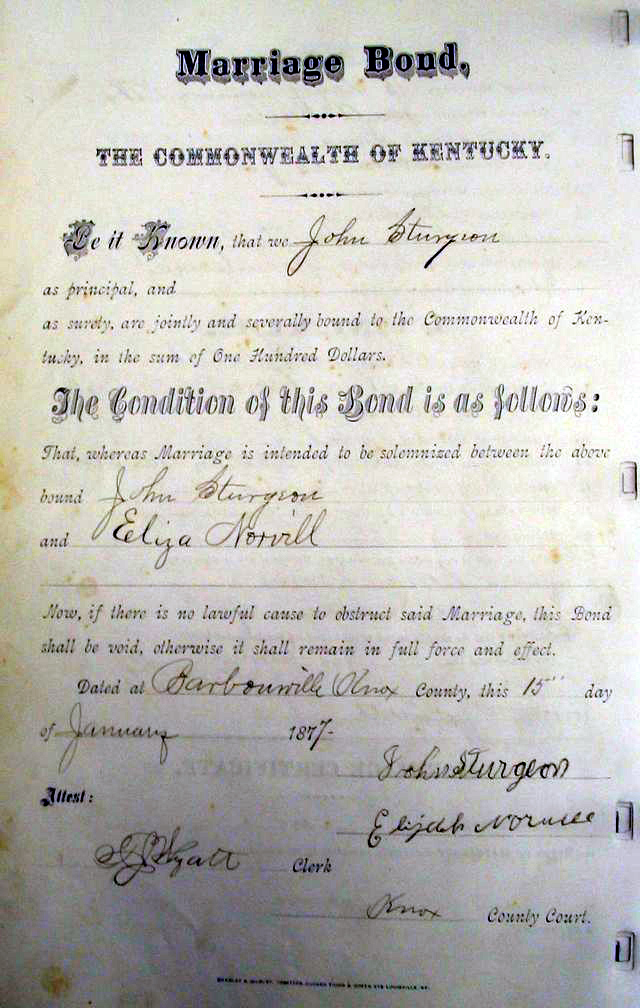 Marriage Bond,
THE COMMONWEALTH OF KENTUCKY.
Be it Known, that we John Sturgeon
as principal, and
as surety, are jointly and severally bound to the Commonwealth of Ken-
tucky, in the sum of One Hundred Dollars.
The Condition of this Bond is as follows:
That, whereas Marriage is intended to be solemnized between the above
bound John Sturgeon
and Eliza Norvill
Now, if there is no lawful cause to obstruct said Marriage, this Bond
shall be void, otherwise it shall remain in full force and effect.
Dated at Barbourville Knox County, this 15" day
of January 1877-
John Sturgeon
Attest:
Elijah
Clerk
Knox County Court.